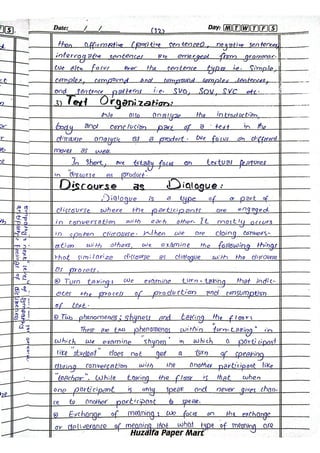 Date: / / (12) Day: M T W T F S
then affirmative (positive sentences), negative sentences,
interrogative sentences are emerged from grammar.
We also focus over the sentence types i.e. Simple,
complex, compound and compound complex sentences,
and sentence patterns i.e. SVO, SOV, SVC etc.
3) Text Organization:
We also analyze the introduction,
body and conclusion part of a text in the
discourse analysis as a product. We focus on different
moves as well.
In Short, we totally focus on textual features
in "discourse as product."
Discourse as Dialogue:
Dialogue is a type of a part of
discourse where the participants are engaged
in conversation with each other. It mostly occurs
in spoken discourse. When we are doing convers-
ation with others, we examine the following things
that similarize discourse as dialogue with the discourse
as process.
① Turn taking: we examine turn-taking that indic-
ates the process of production and consumption
of text.
② Two phenomenons; shyness and taking the floor:
There are two phenomenons within "turn-taking" in
which we examine "shyness" in which a participant
like "student" does not get a turn of speaking
during conversation with the another participant like
"teacher". While taking the floor is that when
one participant is only speak and never gives chan-
ce to another participant to speak.
③ Exchange of meaning: we focus on the exchange
or deliverance of meaning that what type of meaning are
Huzaifa Paper Mart